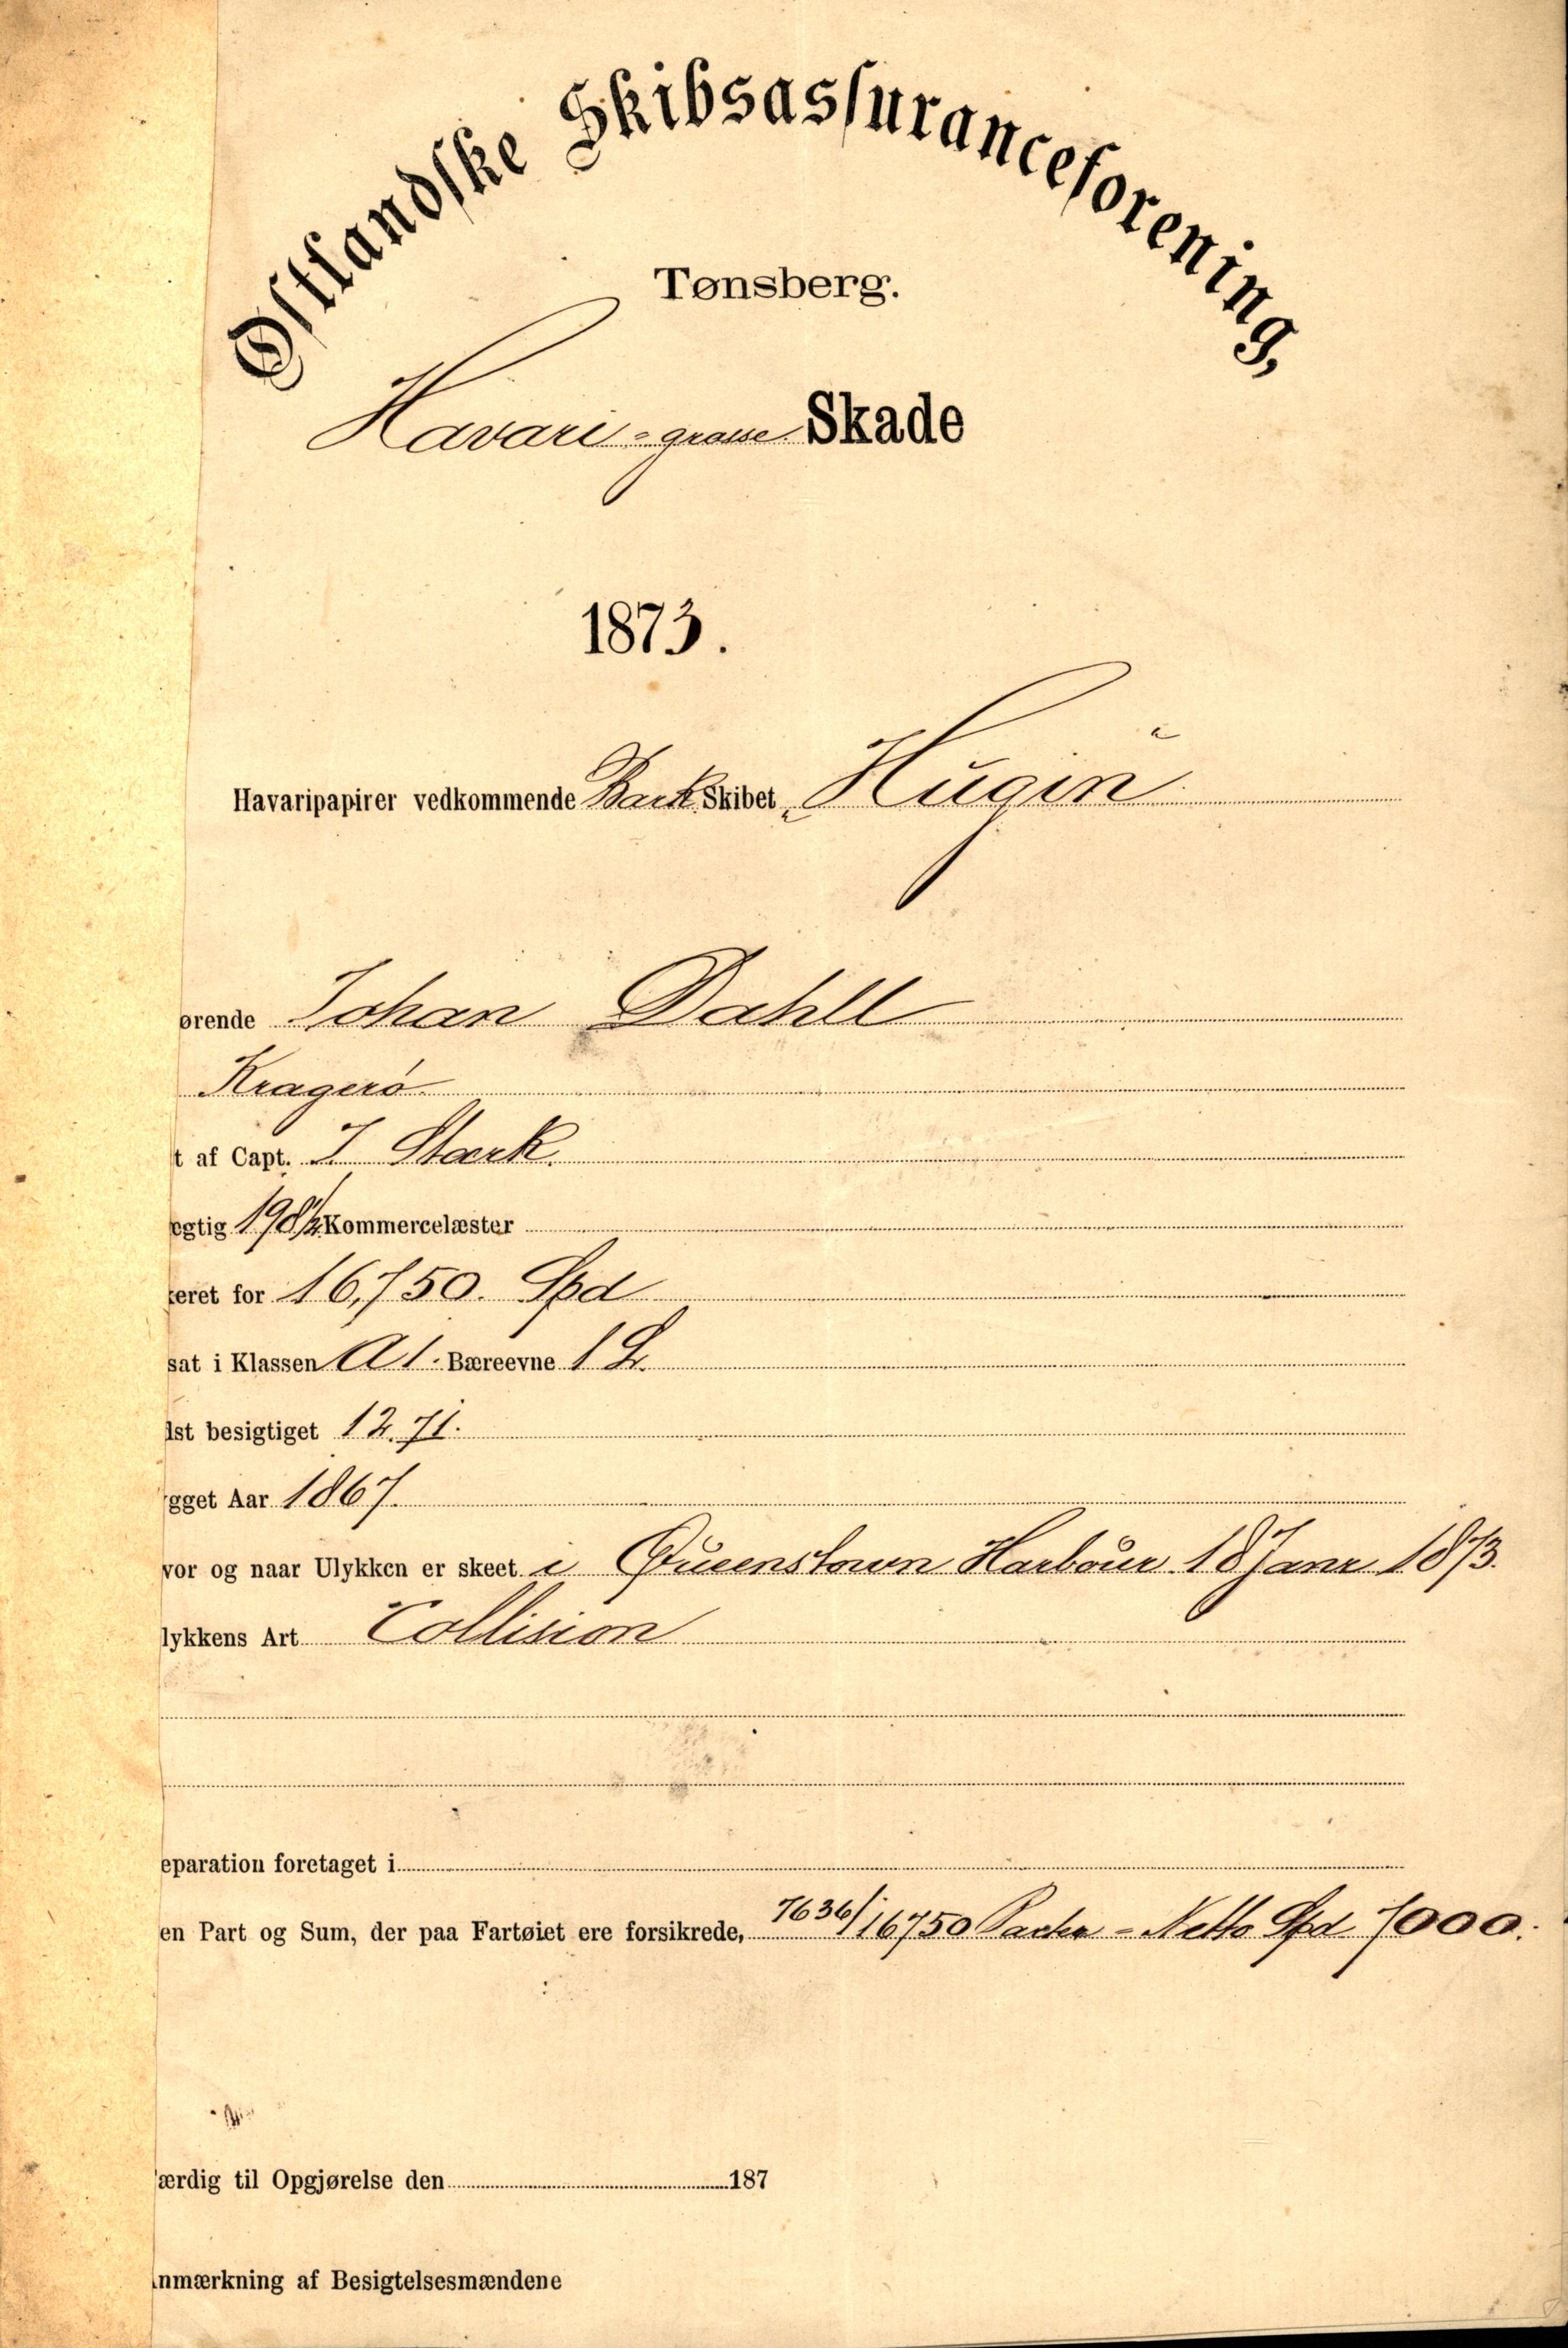 Østlandske Skibsassuranceforening,
Tønsberg.
Havari-grosse Skade
1873.
Havaripapirer vedkommende Bark Skibet „Hugin“
ørende Johan Dahll
Kragerö
t af Capt. J Stærk.
ægtig 198 1/2 Kommercelæster
eret for 16,750. Spd
sat i Klassen A 1. Bæreevne 1
dst besigtiget 12.71.
gget Aar 1867.
vor og naar Ulykken er skeet i Queenstown Harbour 18 Janr 1873.
lykkens Art Collision
eparation foretaget i
en Part og Sum, der paa Fartøiet ere forsikrede, 7636/16750 Parter = Netto Spd 7000.
ærdig til Opgjørelse den 187
nmærkning af Besigtelsesmændene